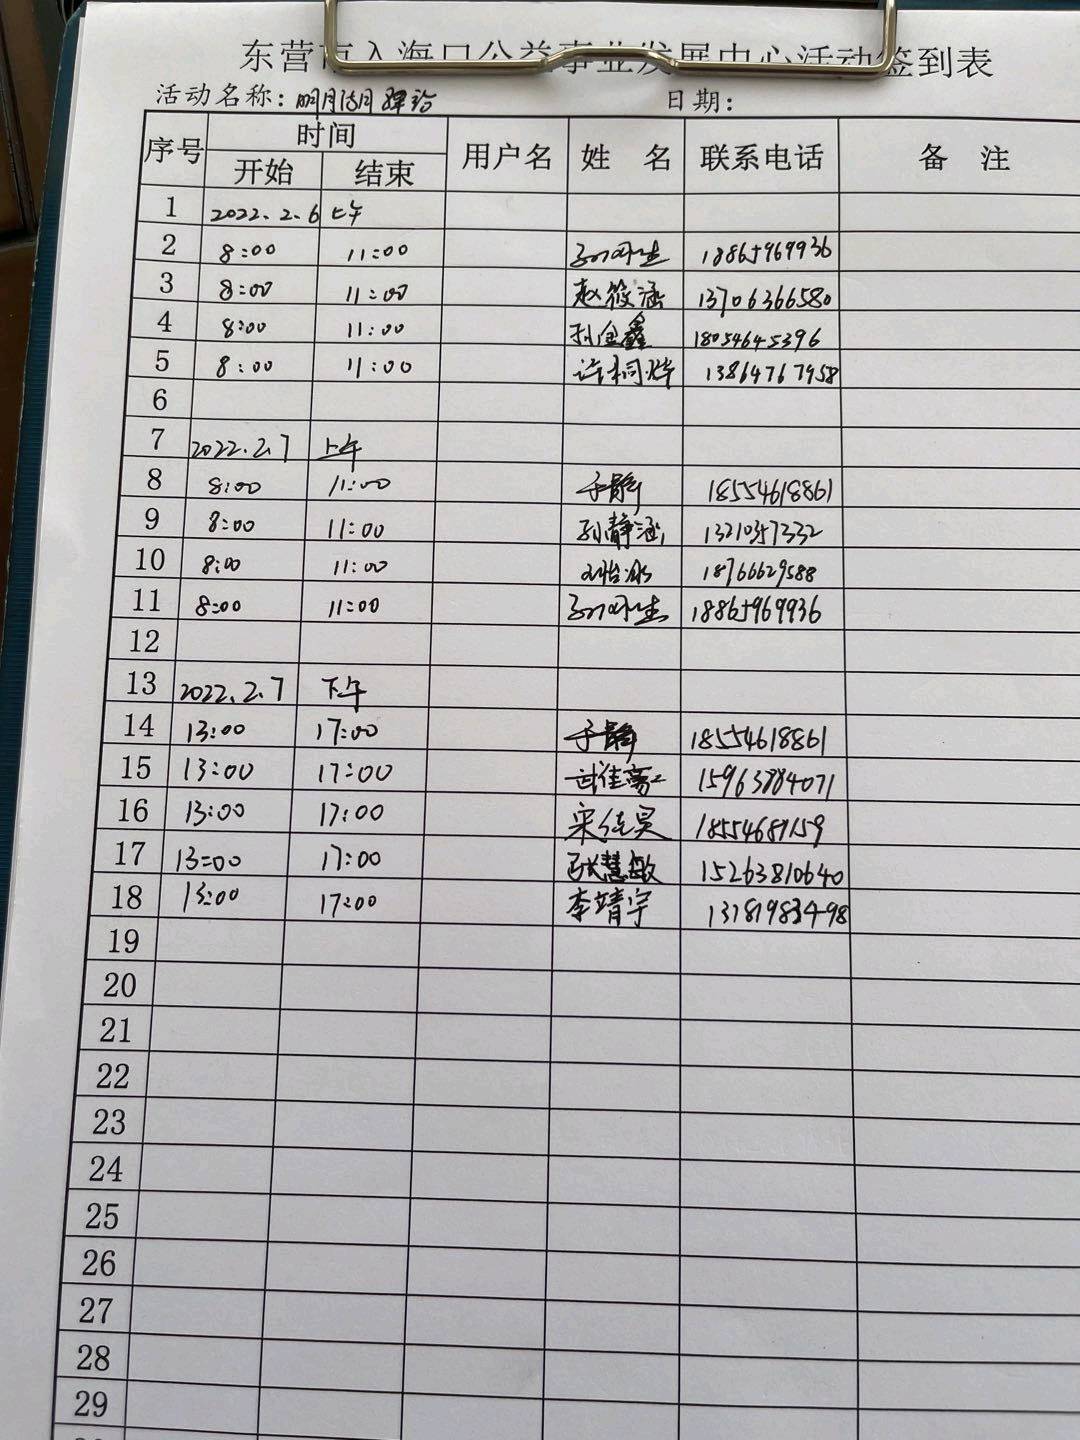 东营市入海口公益事业发展中心活动签到表
活动名称: 明月洁月 日期:
序号 时间 用户名 姓 名 联系电话 备 注
开始 结束
1 2022.2.6 上午
2 8:00 11:00 18865969936
3 8:00 11:00 赵筱涵 13706366580
4 8:00 11:00 孙金鑫 18054645396
5 8:00 11:00 许桐烨 13864767958
6
7 2022.2.7 上午
8 8:00 11:00 于静 18554618861
9 8:00 11:00 孙静涵 13210357332
10 8:00 11:00 18766629588
11 8:00 11:00 18865969936
12
13 2022.2.7 下午
14 13:00 17:00 于静 18554618861
15 13:00 17:00 15963884071
16 13:00 17:00 宋佳昊 18554681159
17 13:00 17:00 张慧敏 15263810640
18 13:00 17:00 李靖宇 13181983498
19
20
21
22
23
24
25
26
27
28
29